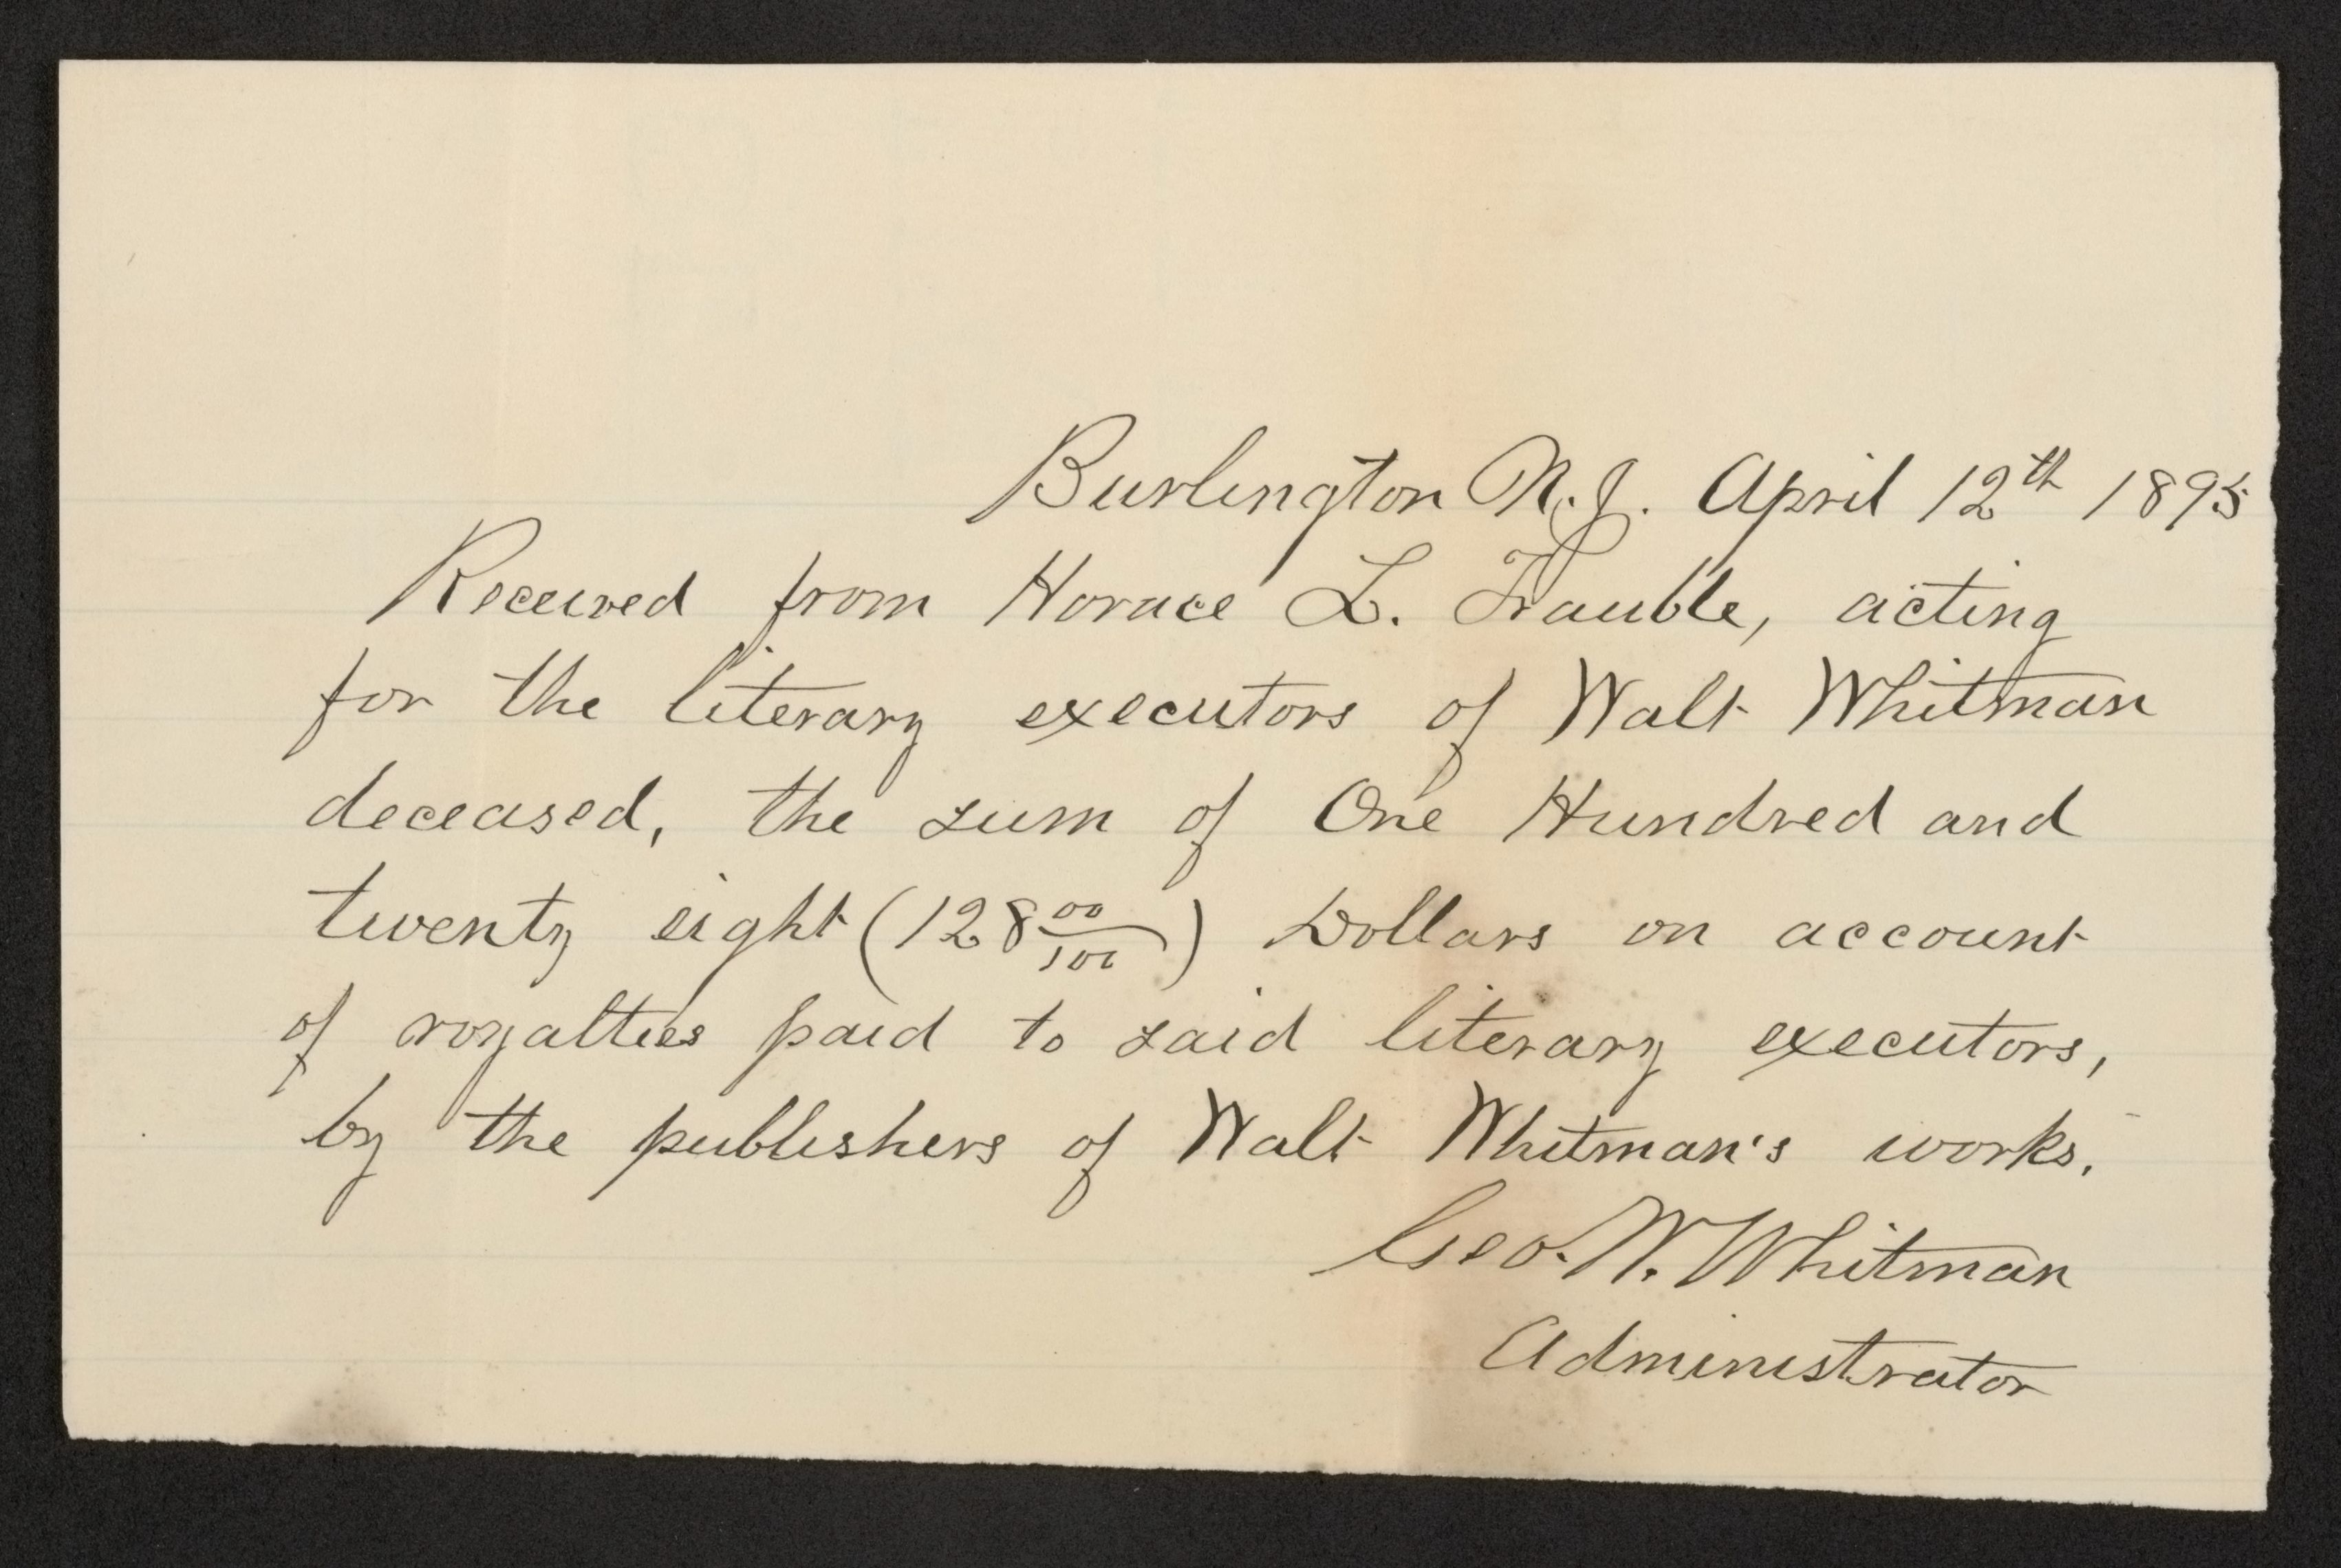 Burlington N.J. April 12th 1895
Received from Horace L. Trauble, acting
for the literary executors of Walt Whitman
deceased, the sum of One Hundred and
twenty eight (128 00/100) Dollars on account
of royalties paid to said literary executors,
by the publishers of Walt Whitman's works.
Geo. W. Whitman
Administrator